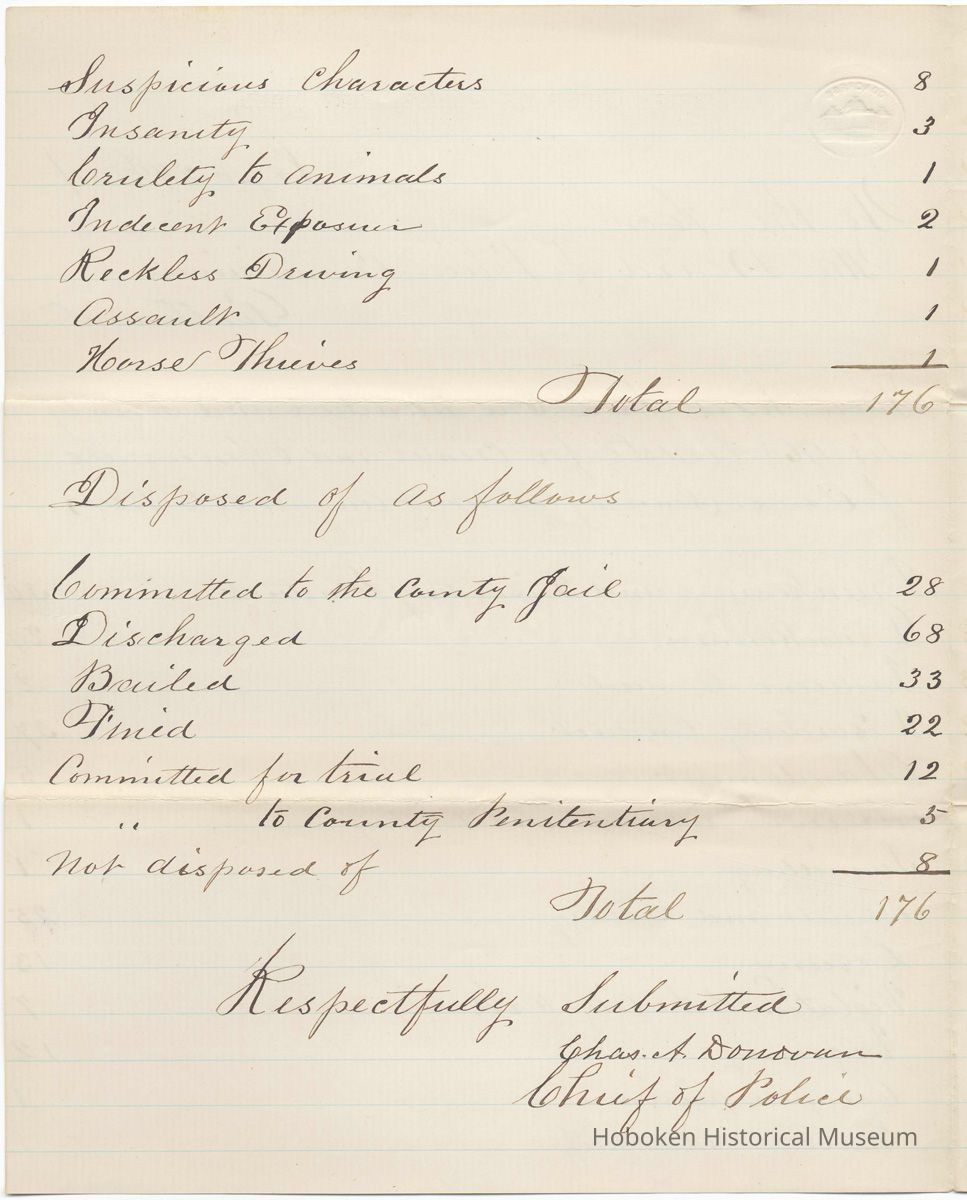 Suspicious Characters 8
Insanity 3
Crulety to Animals 1
Indecent Exposier 2
Reckless Driving 1
Assault 1
Horse Thieves 1
Total 176
Disposed of as follows
Committed to the County Jail 28
Discharged 68
Bailed 33
Fined 22
Committed for trial 12
" to County Penitentiary 5
Not disposed of 8
Total 176
Respectfully Submitted
Chas. A. Donovan
Chief of Police
Hoboken Historical Museum